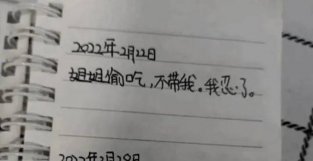 2022年2月22日
姐姐偷吃,不带我。我忍了。
2022年2月28日